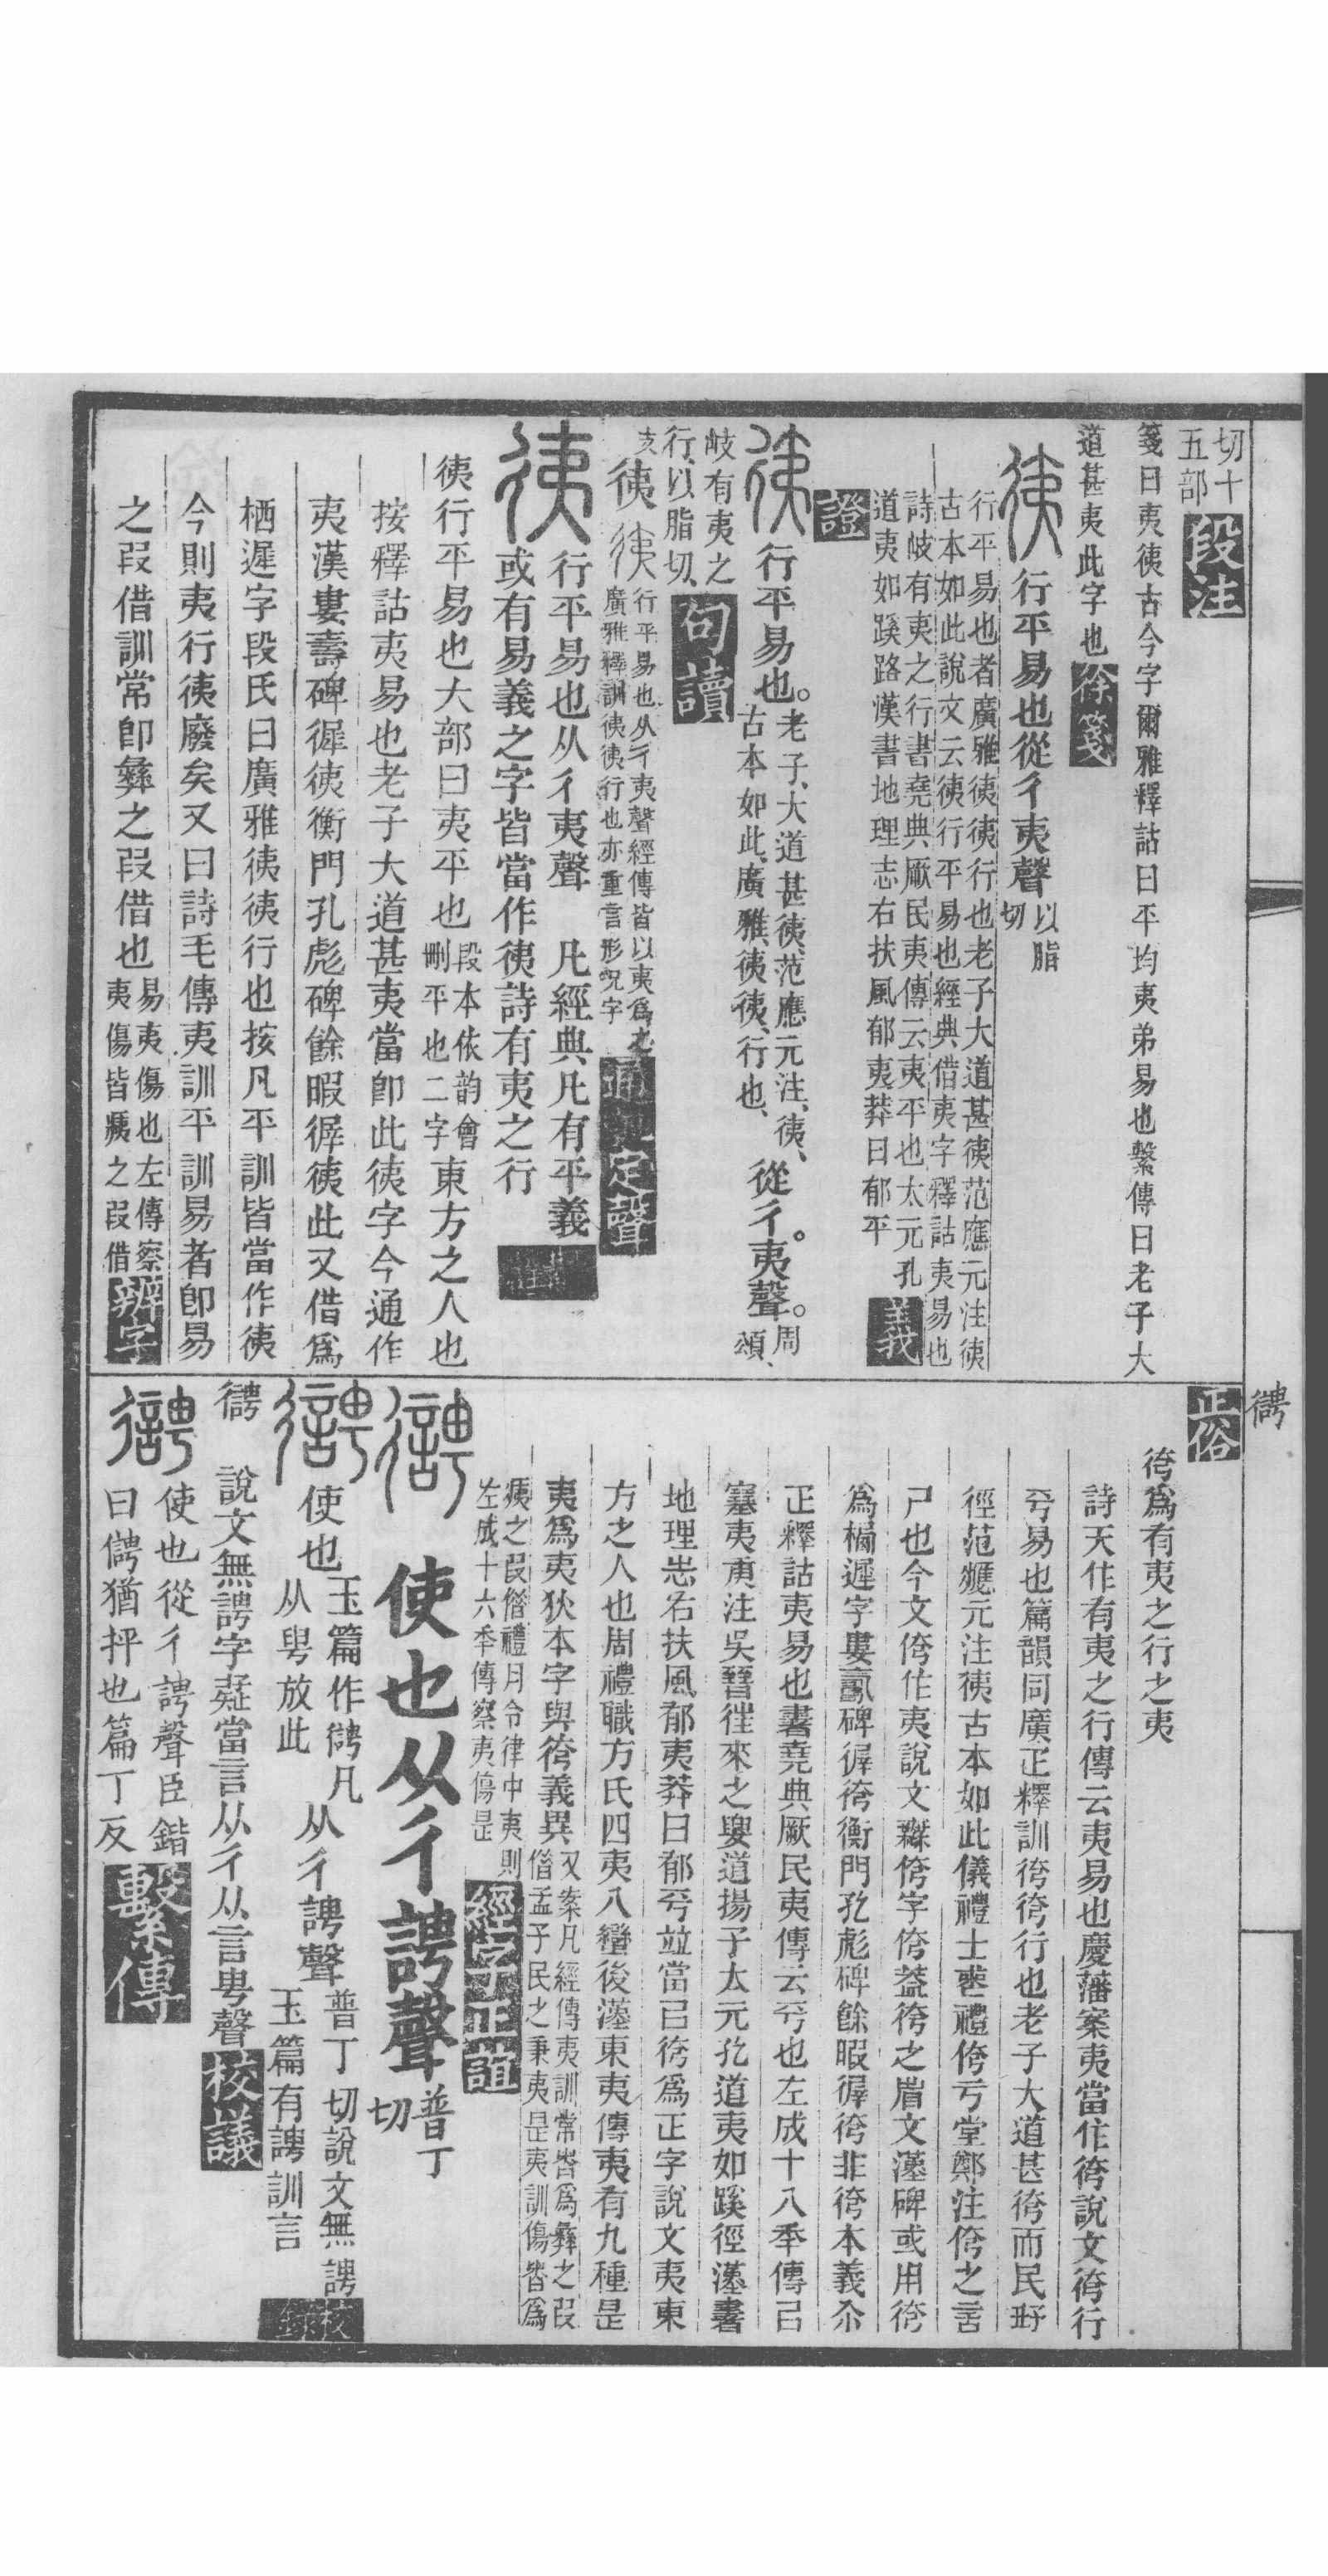 切十
五部 段注
箋曰夷徛古今字爾雅釋詁曰平均夷弟易也繫傳曰老子大
道甚夷此字也 徐箋
行平易也從彳夷聲 以脂
切
行平易也者廣雅徛徛行也老子大道甚徛范應元注徛
古本如此說文云徛行平易也經典借夷字釋詁夷易也
詩岐有夷之行書堯典厥民夷傳云夷平也太元孔
道夷如蹊路漢書地理志右扶風郁夷莽曰郁平 義
證
行平易也。老子、大道甚徛、范應元注、徛、
古本如此、廣雅、徛徛、行也、從彳。夷聲。周
頌、
岐有夷之
行、以脂切、 句讀
行平易也从彳夷聲經傳皆以夷爲之
廣雅釋訓徛徛行也亦重言形況字 通訓定聲
行平易也从彳夷聲 凡經典凡有平義
或有易義之字皆當作徛詩有夷之行
徛行平易也大部曰夷平也 段本依韵會
刪平也二字 東方之人也
按釋詁夷易也老子大道甚夷當卽此徛字今通作
夷漢婁壽碑徲徛衡門孔彪碑餘暇徲徛此又借爲
栖遲字段氏曰廣雅徛徛行也按凡平訓皆當作徛
今則夷行徛廢矣又曰詩毛傳夷訓平訓易者卽易
之叚借訓常卽彝之叚借也 易夷傷也左傳察
夷傷皆痍之叚借 辨字
正俗
爲有夷之行之夷
詩天作有夷之行傳云夷易也慶藩案夷當作徛說文徛行
平易也篇韻同廣疋釋訓徛徛行也老子大道甚徛而民好
徑范應元注徛古本如此儀禮士喪禮侇于堂鄭注侇之言
尸也今文侇作夷說文無侇字侇蓋徛之省文漢碑或用徛
爲棲遲字婁壽碑徲徛衡門孔彪碑餘暇徲徛非徛本義尒
疋釋詁夷易也書堯典厥民夷傳云平也左成十八年傳以
塞夷庚注吳晉往來之要道揚子太元孔道夷如蹊徑漢書
地理志右扶風郁夷莽曰郁平竝當以徛爲正字說文夷東
方之人也周禮職方氏四夷八蠻後漢東夷傳夷有九種是
夷爲夷狄本字與徛義異 又案凡經傳夷訓常皆爲彝之叚
借孟子民之秉夷是夷訓傷皆爲
痍之叚借禮月令律中夷則
左成十六年傳察夷傷是 經字正誼
使也从彳諤聲 普丁
切
使也 玉篇作䛣凡
从甹放此 从彳諤聲 普丁切說文無諤
玉篇有諤訓言 校錄
說文無諤字疑當言从彳从言甹聲 校議
使也從彳諤聲臣鍇
曰儜猶抨也篇丁反 繫傳